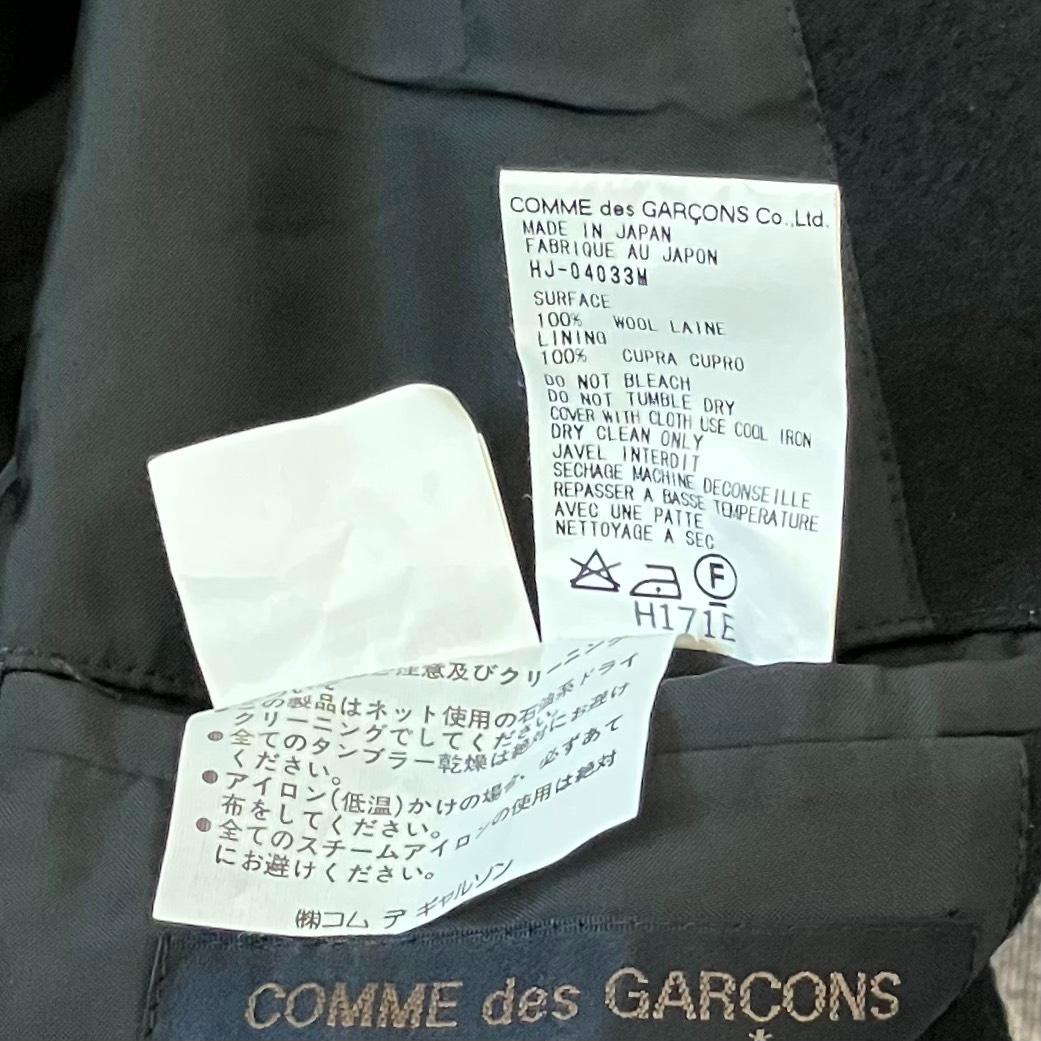 COMME des GARÇONS Co.,Ltd.
MADE IN JAPAN
FABRIQUE AU JAPON
HJ-04033M
SURFACE
100% WOOL LAINE
LINING
100% CUPRA CUPRO
DO NOT BLEACH
DO NOT TUMBLE DRY
COVER WITH CLOTH USE COOL IRON
DRY CLEAN ONLY
JAVEL INTERDIT
SECHAGE MACHINE DECONSEILLE
REPASSER A BASSE TEMPERATURE
AVEC UNE PATTE
NETTOYAGE A SEC
F
H171E
注意及びクリーニング
この製品はネット使用の石油系ドライ
クリーニングでしてください。
●全てのタンブラー乾燥は絶対にお避け
ください。
●アイロン(低温)かけの場合、必ずあて
布をしてください。
●全てのスチームアイロンの使用は絶対
にお避けください。
㈱コム デ ギャルソン
COMME des GARÇONS